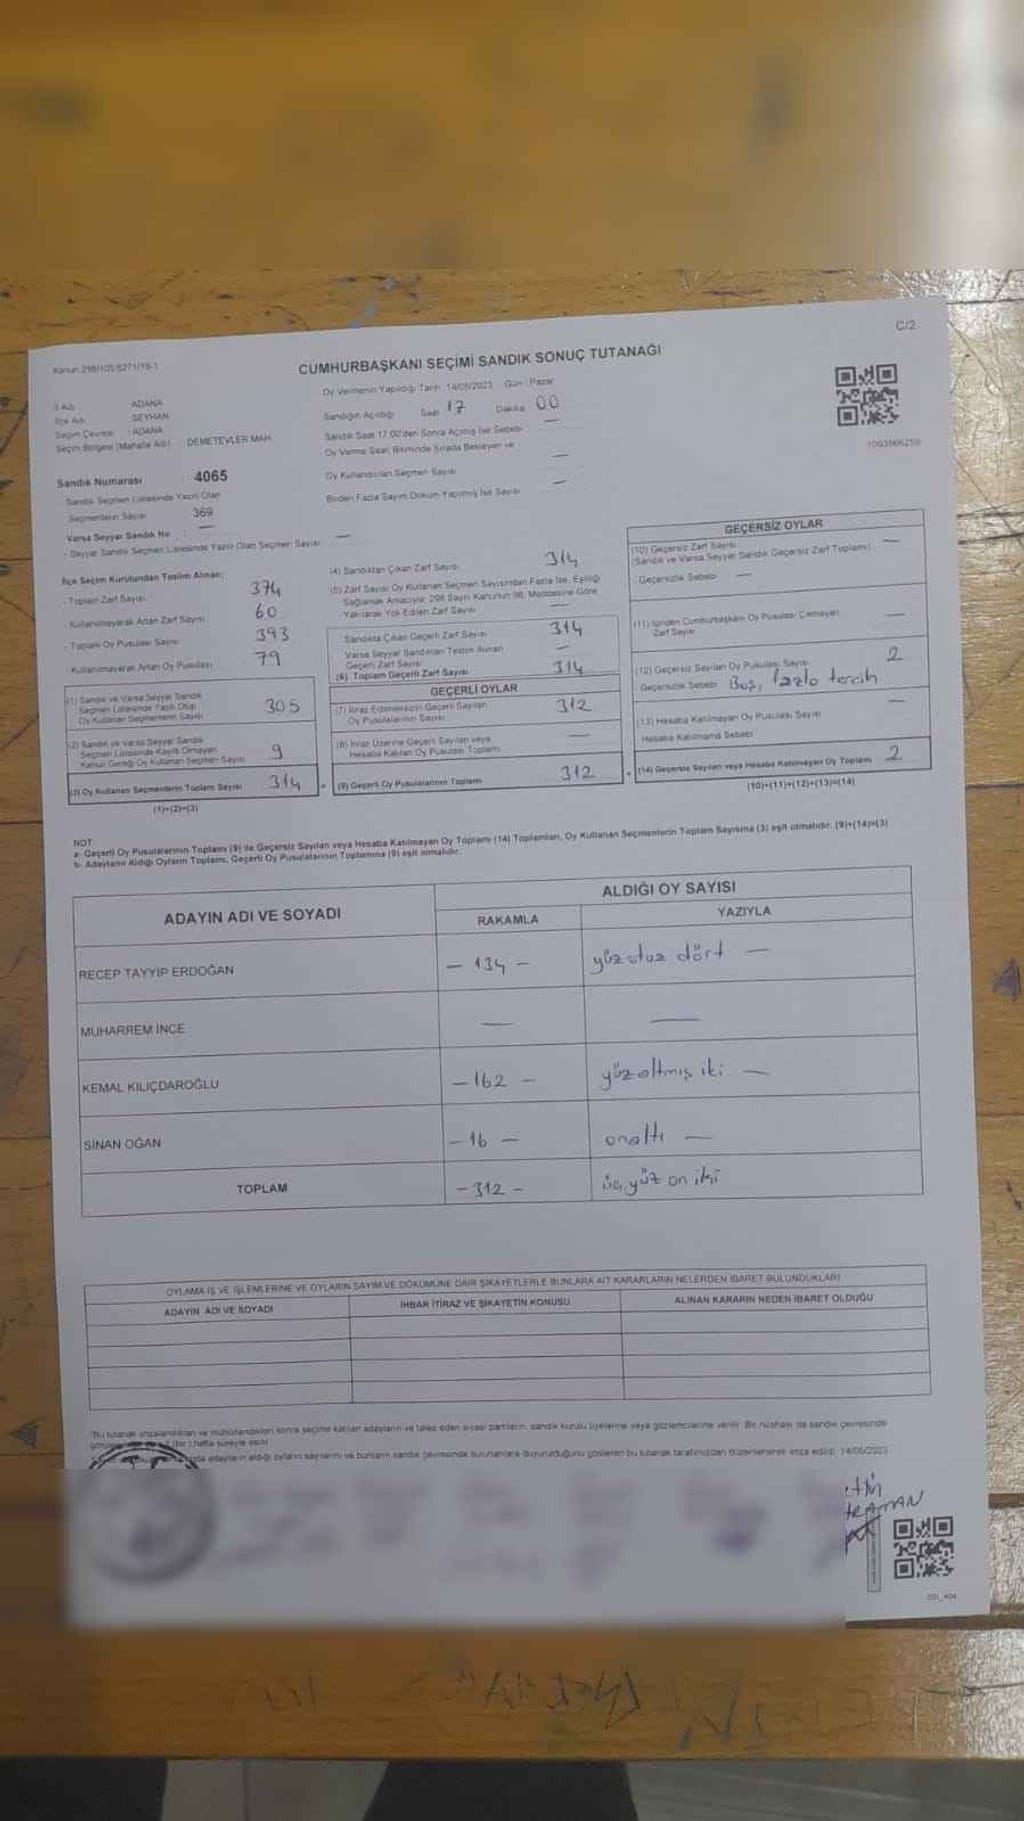 C/2
Kanun:298/105,6271/16-1
CUMHURBAŞKANI SEÇİMİ SANDIK SONUÇ TUTANAĞI
İl Adı ADANA
İlçe Adı SEYHAN
Seçim Çevresi : ADANA
Seçim Bölgesi (Mahalle Adı) : DEMETEVLER MAH.
Oy Vermenin Yapıldığı Tarih: 14/05/2023 Gün: Pazar
Sandığın Açıldığı Saat 17 Dakika 00
Sandık Saat 17.00'den Sonra Açılmış İse Sebebi —
Oy Verme Saati Bitiminde Sırada Bekleyen ve
Oy Kullandırılan Seçmen Sayısı —
Birden Fazla Sayım Döküm Yapılmış İse Sayısı —
Sandık Numarası : 4065
Sandık Seçmen Listesinde Yazılı Olan
Seçmenlerin Sayısı 369
Varsa Seyyar Sandık No : —
- Seyyar Sandık Seçmen Listesinde Yazılı Olan Seçmen Sayısı: —
İlçe Seçim Kurulundan Teslim Alınan;
- Toplam Zarf Sayısı 374
- Kullanılmayarak Artan Zarf Sayısı 60
- Toplam Oy Pusulası Sayısı 393
- Kullanılmayarak Artan Oy Pusulası 79
(1) Sandık ve Varsa Seyyar Sandık
Seçmen Listesinde Yazılı Olup
Oy Kullanan Seçmenlerin Sayısı 305
(2) Sandık ve Varsa Seyyar Sandık
Seçmen Listesinde Kayıtlı Olmayan
Kanun Gereği Oy Kullanan Seçmen Sayısı 9
(3) Oy Kullanan Seçmenlerin Toplam Sayısı 314
(1)+(2)=(3)
(4) Sandıktan Çıkan Zarf Sayısı 314
(5) Zarf Sayısı Oy Kullanan Seçmen Sayısından Fazla İse, Eşitliği
Sağlamak Amacıyla; 298 Sayılı Kanunun 98. Maddesine Göre
Yakılarak Yok Edilen Zarf Sayısı —
Sandıkta Çıkan Geçerli Zarf Sayısı 314
Varsa Seyyar Sandıktan Teslim Alınan
Geçerli Zarf Sayısı —
(6) Toplam Geçerli Zarf Sayısı 314
GEÇERLİ OYLAR
(7) İtiraz Edilmeksizin Geçerli Sayılan
Oy Pusulalarının Sayısı 312
(8) İtiraz Üzerine Geçerli Sayılan veya
Hesaba Katılan Oy Pusulası Toplamı —
(9) Geçerli Oy Pusulalarının Toplamı 312
1093866259
GEÇERSİZ OYLAR
(10) Geçersiz Zarf Sayısı —
(Sandık ve Varsa Seyyar Sandık Geçersiz Zarf Toplamı)
Geçersizlik Sebebi —
(11) İçinden Cumhurbaşkanı Oy Pusulası Çıkmayan
Zarf Sayısı —
(12) Geçersiz Sayılan Oy Pusulası Sayısı 2
Geçersizlik Sebebi Boş, fazla tercih
(13) Hesaba Katılmayan Oy Pusulası Sayısı —
Hesaba Katılmama Sebebi
(14) Geçersiz Sayılan veya Hesaba Katılmayan Oy Toplamı 2
(10)+(11)+(12)+(13)=(14)
NOT
a- Geçerli Oy Pusulalarının Toplamı (9) ile Geçersiz Sayılan veya Hesaba Katılmayan Oy Toplamı (14) Toplamları, Oy Kullanan Seçmenlerin Toplam Sayısına (3) eşit olmalıdır. (9)+(14)=(3)
b- Adayların Aldığı Oyların Toplamı, Geçerli Oy Pusulalarının Toplamına (9) eşit olmalıdır.
ADAYIN ADI VE SOYADI ALDIĞI OY SAYISI
RAKAMLA YAZIYLA
RECEP TAYYİP ERDOĞAN – 134 – yüzotuz dört —
MUHARREM İNCE — —
KEMAL KILIÇDAROĞLU – 162 – yüzaltmış iki —
SİNAN OĞAN – 16 – onaltı —
TOPLAM – 312 – üçyüz on iki
OYLAMA İŞ VE İŞLEMLERİNE VE OYLARIN SAYIM VE DÖKÜMÜNE DAİR ŞİKAYETLERLE BUNLARA AİT KARARLARIN NELERDEN İBARET BULUNDUKLARI
ADAYIN ADI VE SOYADI İHBAR İTİRAZ VE ŞİKAYETİN KONUSU ALINAN KARARIN NEDEN İBARET OLDUĞU
Bu tutanak imzalandıktan ve mühürlendikten sonra seçime katılan adayların ve talep eden siyasi partilerin, sandık kurulu üyelerine veya gözlemcilerine verilir. Bir nüshası da sandık çevresinde
(bir) hafta süreyle asılır.
adayların aldığı oyların sayılarını ve bunların sandık çevresinde bulunanlara duyurulduğunu gösteren bu tutanak tarafımızdan düzenlenerek imza edildi. 14/05/2023